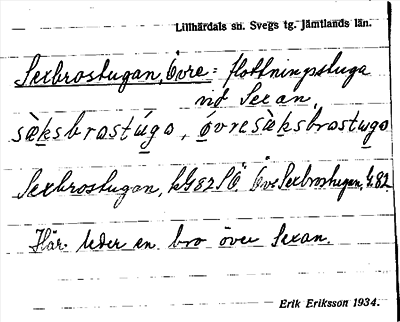 Lillhärdals sn. Svegs tg. Jämtlands län.
Sexbrostugan, Övre = flottningsstuga
vid Sexan.
sèksbrastúgo, óvresèksbrastugo
Sexbrostugan, kG 82 SÖ. Övre Sexbrostugan, G.82
Här leder en bro över Sexan.
Erik Eriksson 1934.